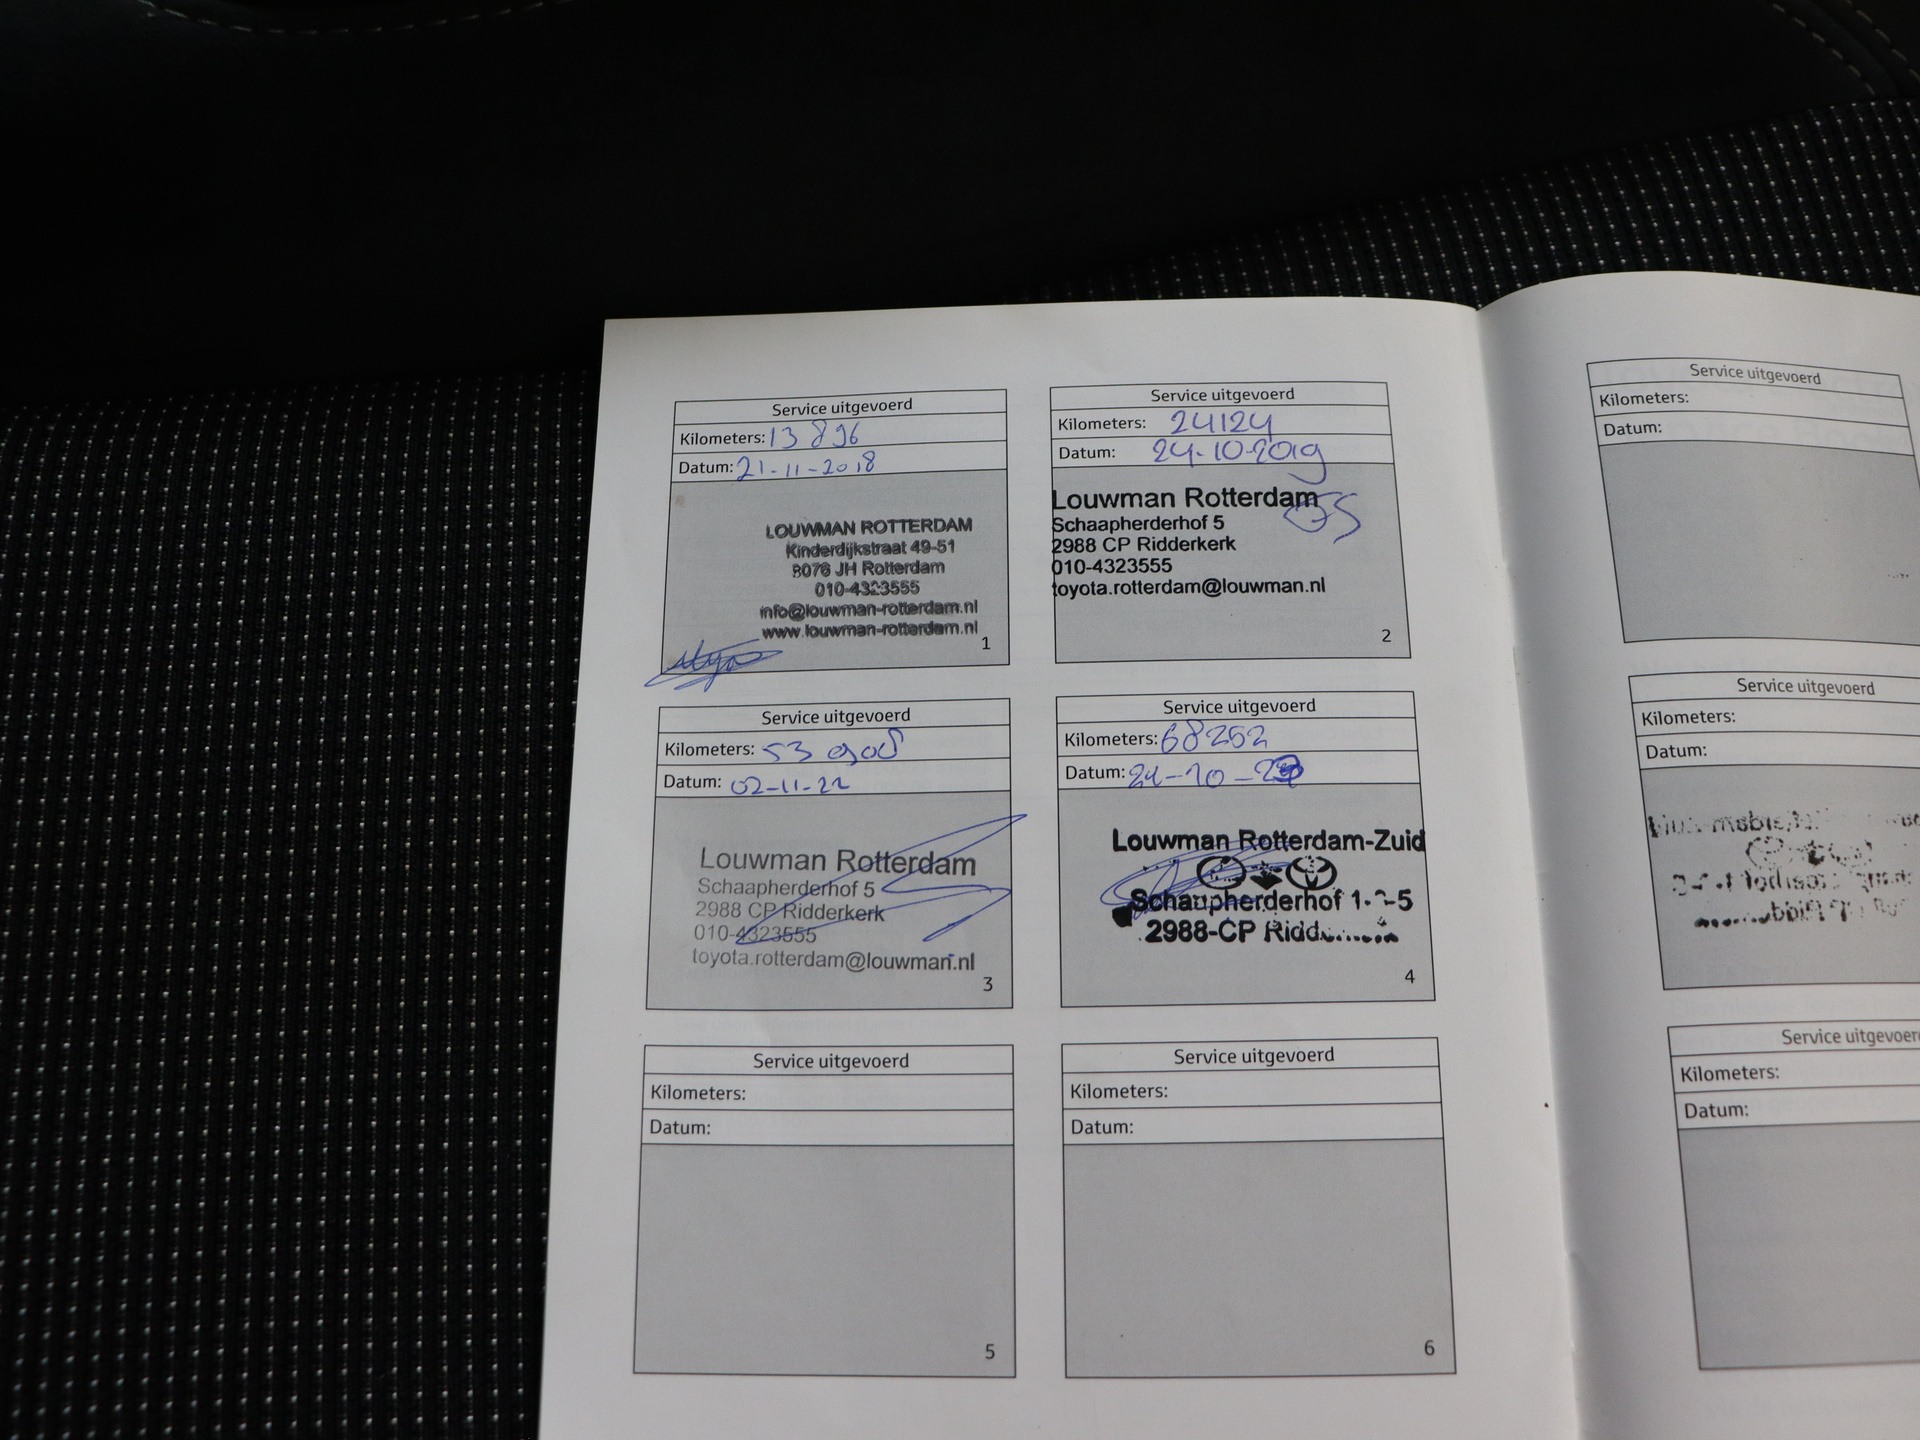 Service uitgevoerd
Kilometers: 13 896
Datum: 21-11-2018
LOUWMAN ROTTERDAM
Kinderdijkstraat 49-51
3076 JH Rotterdam
010-4323555
info@louwman-rotterdam.nl
www.louwman-rotterdam.nl
1
Service uitgevoerd
Kilometers: 24124
Datum: 24-10-2019
Louwman Rotterdam
Schaapherderhof 5
2988 CP Ridderkerk
010-4323555
toyota.rotterdam@louwman.nl
2
Service uitgevoerd
Kilometers: 53 908
Datum: 02-11-22
Louwman Rotterdam
Schaapherderhof 5
2988 CP Ridderkerk
010-4323555
toyota.rotterdam@louwman.nl
3
Service uitgevoerd
Kilometers: 68252
Datum: 24-10-23
Louwman Rotterdam-Zuid
Schaapherderhof
2988-CP
4
Service uitgevoerd
Kilometers:
Datum:
5
Service uitgevoerd
Kilometers:
Datum:
6
Service uitgevoerd
Kilometers:
Datum:
Service uitgevoerd
Kilometers:
Datum:
Service uitgevoerd
Kilometers:
Datum: